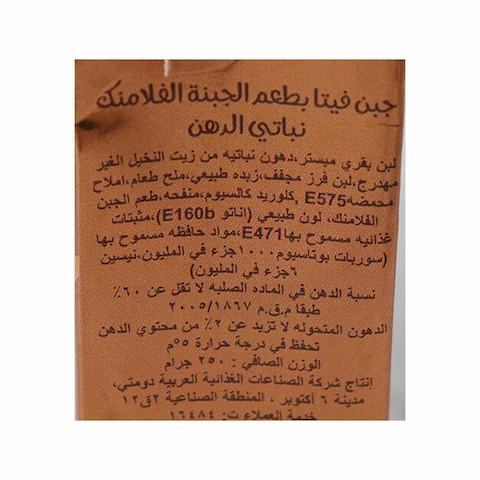 جبن فيتا بطعم الجبنة الفلامنك
نباتي الدهن
لبن بقري مبستر،دهون نباتيه من زيت النخيل الغير
مهدرج،لبن فرز مجفف،زبده طبيعي،ملح طعام،املاح
محمضهE575 ,كلوريد كالسيوم،منفحه،طعم الجبن
الفلامنك، لون طبيعي (اناتو E160b)،مثبتات
غذائيه مسموح بهاE471،مواد حافظه مسموح بها
(سوربات بوتاسيوم١٠٠٠جزء في المليون،نيسين
٦جزء في المليون)
نسبة الدهن في الماده الصلبه لا تقل عن ٦٠٪
طبقا م.ق.م ٢٠٠٥/١٨٦٧
الدهون المتحوله لا تزيد عن ٢٪ من محتوي الدهن
تحفظ في درجة حرارة ٥°م
الوزن الصافي : ٢٥٠ جرام
إنتاج شركة الصناعات الغذائية العربية دومتي،
مدينة ٦ أكتوبر ، المنطقة الصناعية ٢ق١٢
خدمة العملاء ت: ١٦٤٨٤